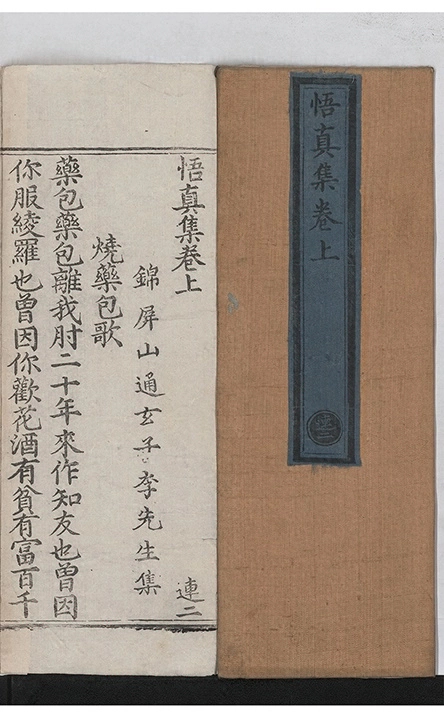 悟真集卷上
連二
悟真集卷上
連二
錦屏山通玄子李先生集
燒藥包歌
藥包藥包離我肘二十年來作知友也曾因
你服綾羅也曾因你歡花酒有貧有富百千